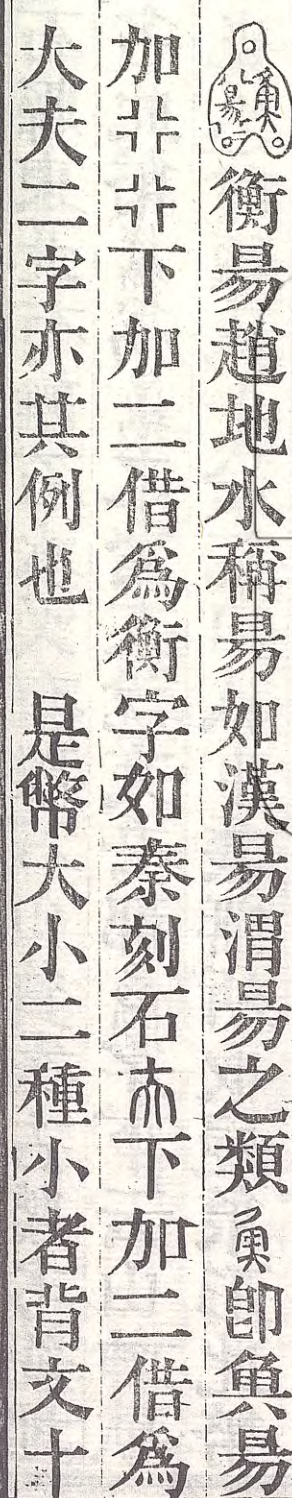 衡昜趙地水稱昜如漢昜渭昜之類𩵋卽魚昜
加𠦄𠦄下加二借爲衡字如秦刻石夫下加二借爲
大夫二字亦其例也　是幣大小二種小者背文十